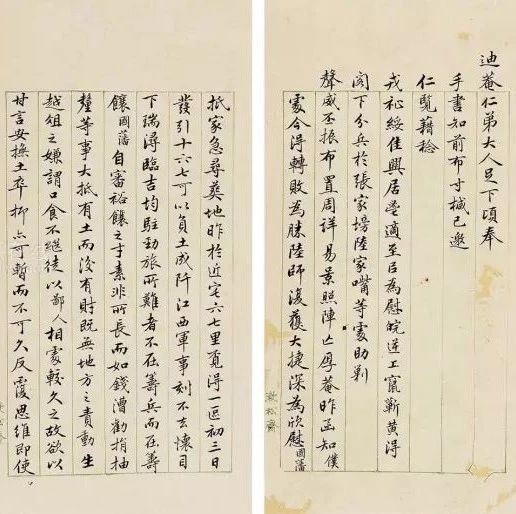 迪菴仁弟大人足下頃奉
手書知前布寸椷已邀
仁覽藉稔
戎祉綏佳興居罄適至以為慰皖逆上竄蘄黃得
閣下分兵於張家塝陸家嘴等處助剿
聲威丕振布置周詳易景照陣亡厚菴昨函知僕
處今得轉敗為勝陸師復獲大捷深為欣慰國藩
抵家急尋葬地昨於近宅六七里覓得一區初三日
發引十六七可以負土成阡江西軍事刻不去懷目
下瑞潯臨吉均駐勁旅所難者不在籌兵而在籌
饟國藩自審裕饟之才素非所長而如錢漕勸捐抽
釐等事大抵有土而後有財既無地方之責動生
越俎之嫌謂口食不繼徒以鄙人相處較久之故欲以
甘言安撫士卒抑亦可暫而不可久反覆思維即使